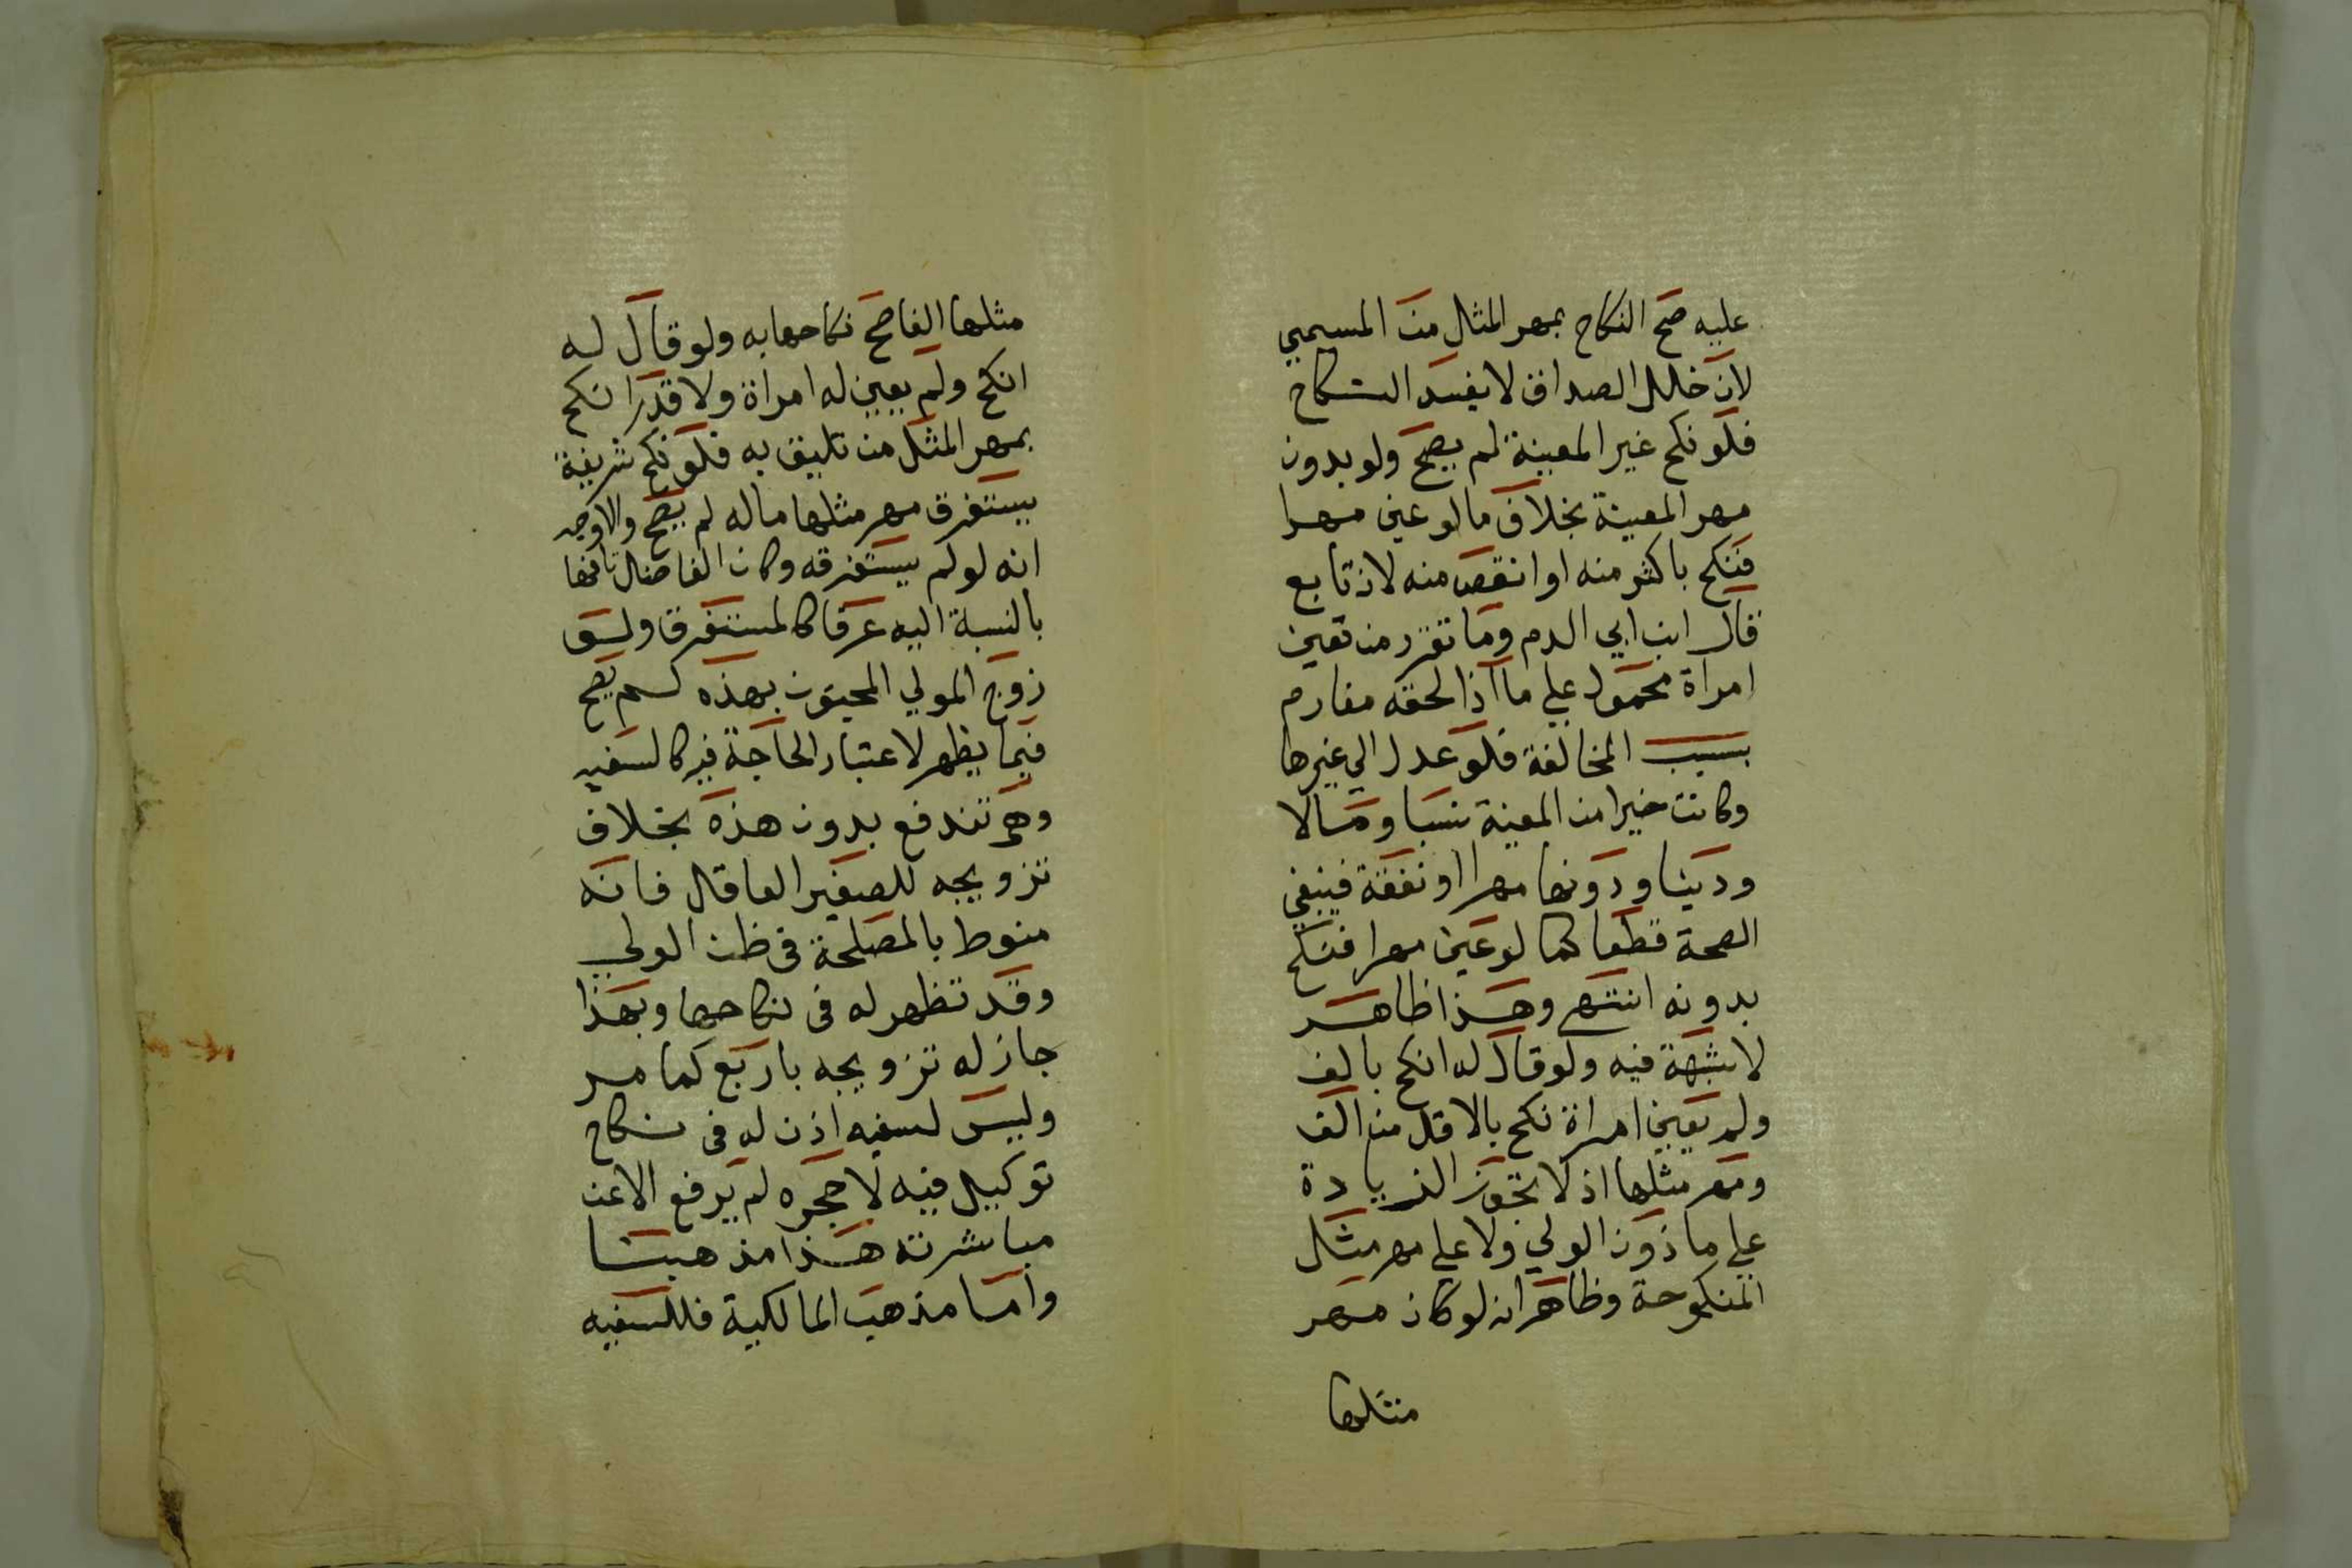 عليه صح النكاح بمهر المثل من المسمي
لان خلل الصداق لا يفسد النكاح
فلو نكح غير المعينة لم يصح ولو بدون
مهر المعينة بخلاف ما لو عين مهرا
فنكح باكثر منه او انقص منه لانه تابع
قال ابن ابي الدم وما تقرر من تعين
امراة محمول علي ما اذا لحقه مغارم
بسبب المخالفة فلو عدل الي غيرها
وكانت خيرا من المعينة نسبا ومالا
ودينا ودونها مهرا او نفقة فينبغي
الصحة قطعا كما لو عين مهرا فنكح
بدونه انتهي وهذا ظاهر
لا شبهة فيه ولو قال له انكح بالف
ولم يعين امراة نكح بالاقل من الف
ومهر مثلها اذ لا تجوز الزيادة
علي ماذون الولي ولا علي مهر مثل
المنكوحة وظاهر انه لو كان مهر
مثلها
مثلها الفا صح نكاحها به ولو قال له
انكح ولم يعين له امراة ولا قدرا نكح
بمهر المثل من تليق به فلو نكح شريفة
يستغرق مهر مثلها ماله لم يصح والاوجه
انه لو لم يستغرقه وكان الفاضل تافها
بالنسبة اليه عرفا كالمستغرق ولو
زوج المولي المجنون بهذه لم يصح
فيما يظهر لاعتبار الحاجة فيه كالسفيه
وهي تندفع بدون هذه بخلاف
تزويجه للصغير العاقل فانه
منوط بالمصلحة في ظن الولي
وقد تظهر له في نكاحها وبهذا
جاز له تزويجه باربع كما مر
وليس لسفيه اذن له في نكاح
توكيل فيه لا حجره لم يرفع الا عن
مباشرته هذا مذهبنا
واما مذهب المالكية فللسفيه